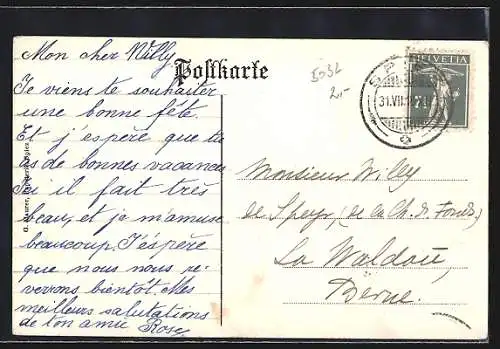 Mon cher Willy
Je viens te souhaiter
une bonne fête.
Et j espère que tu
as de bonnes vacances
Ici il fait très
beau, et je m'amuse
beaucoup. J'éspère
que nous nous re-
verrons bientôt. Mes
meilleurs salutations
de ton amie Rose
Postkarte
2,-
HELVETIA
31.VII
Monsieur Willy
de Speyr, (de la Ch. d. Fonds)
La Waldau,
Berne.